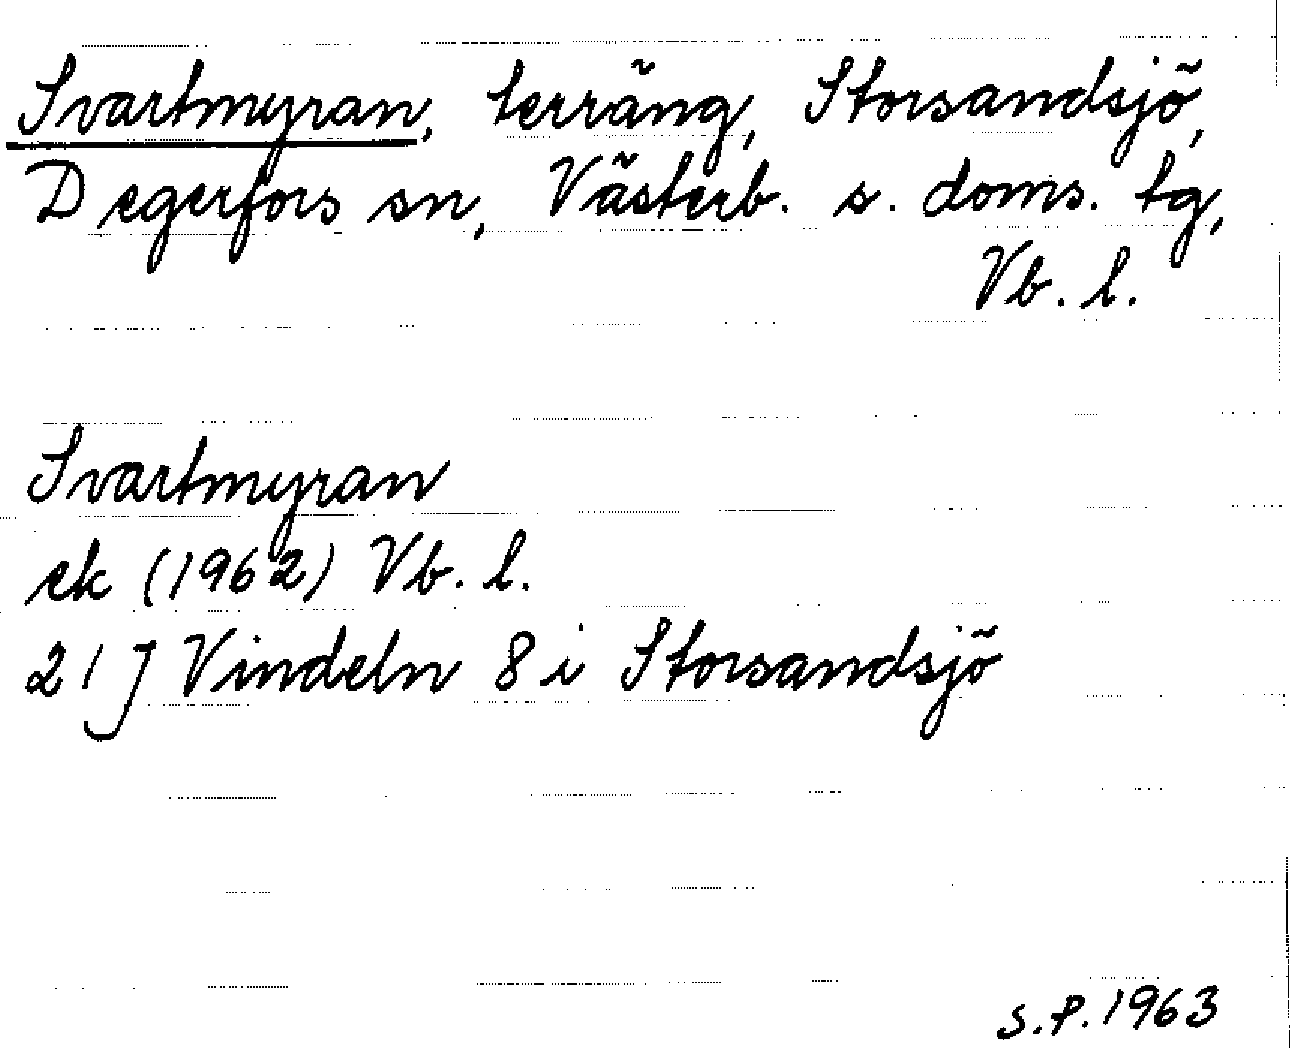 Svartmyran, terräng, Storsandsjö,
Degerfors sn, Västerb. s. doms. tg,
Vb. l.
Svartmyran
ek (1962) Vb. l.
21 J Vindeln 8 i Storsandsjö
S.P. 1963